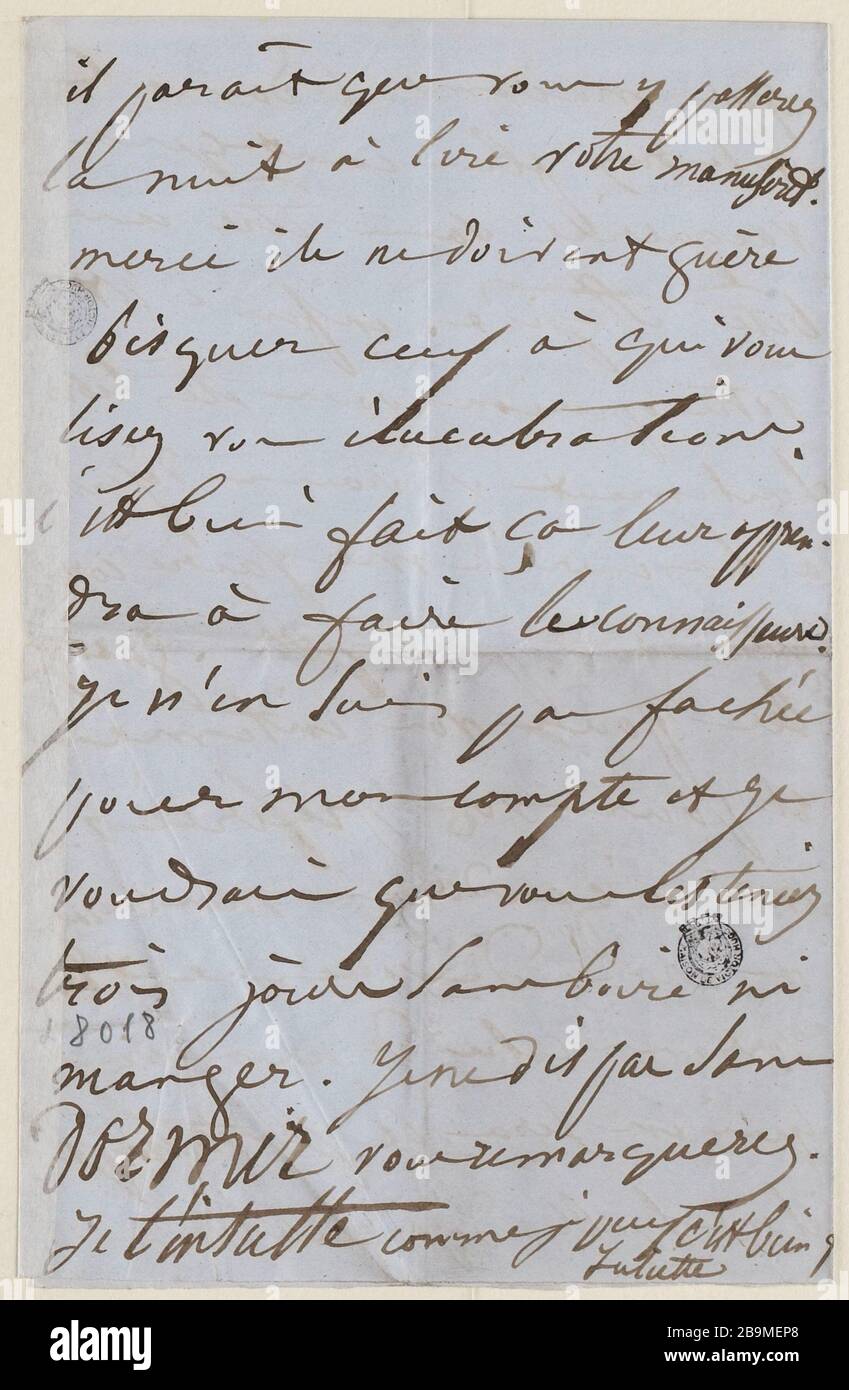 il parait que vous y passerez
la nuit à lire votre manuscrit.
merci ils ne doivent guère
bisquer ceux à qui vous
lisez vos élucubrations.
c'est bien fait ça leur appren-
dra à faire les connaisseurs.
Je n'en suis pas fachée
pour mon compte et je
voudrais que vous les teniez
trois jours sans boire ni
manger. Je ne dis pas sans
DORMIR vous remarquerez.
Je t' comme je puis c'est bien
Juliette
8018
alamy
Image ID: 2B9MEP8
www.alamy.com